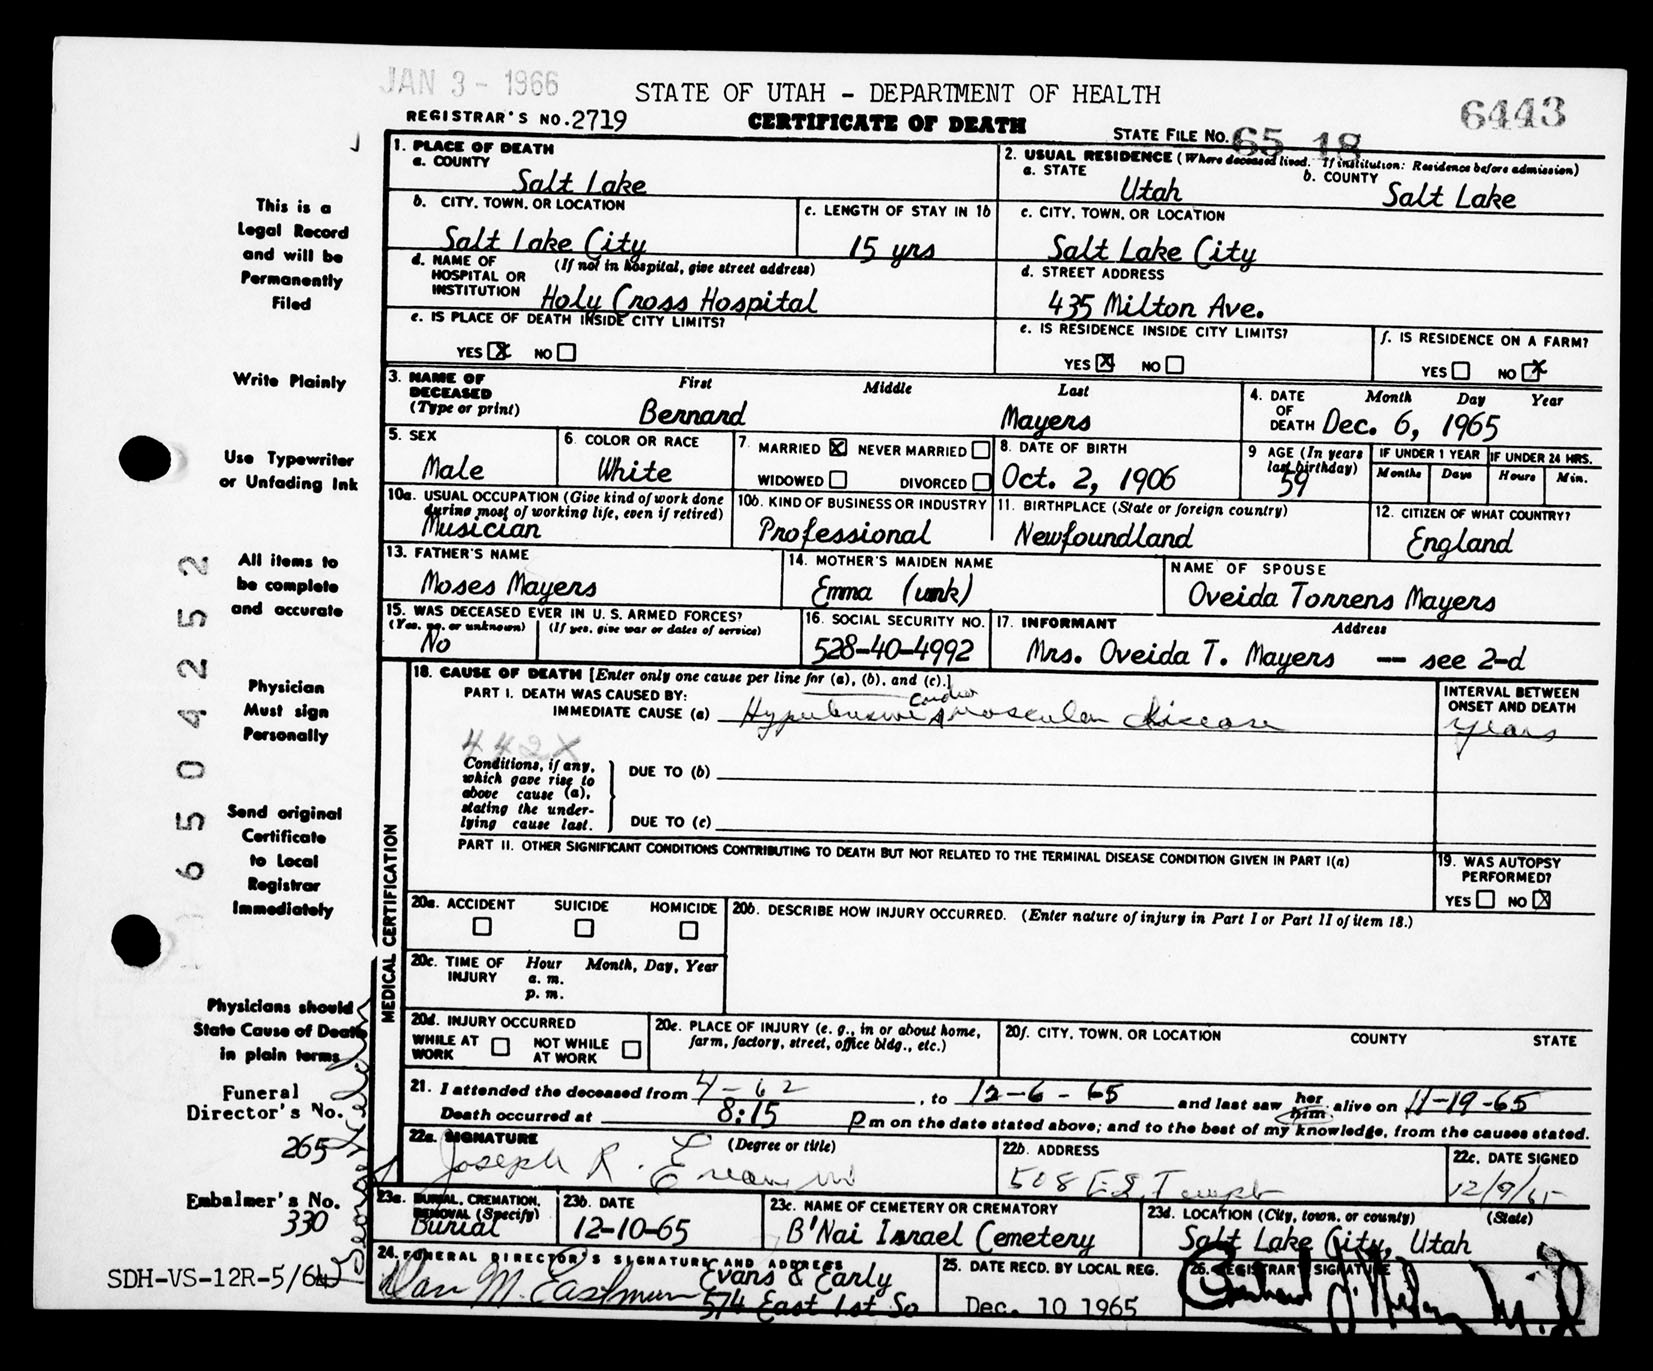 JAN 3 - 1966
STATE OF UTAH - DEPARTMENT OF HEALTH
6443
REGISTRAR'S NO. 2719
CERTIFICATE OF DEATH
STATE FILE NO. 65 18
1. PLACE OF DEATH
a. COUNTY
Salt Lake
2. USUAL RESIDENCE (Where deceased lived. If institution: Residence before admission)
a. STATE
Utah
b. COUNTY
Salt Lake
b. CITY, TOWN, OR LOCATION
Salt Lake City
c. LENGTH OF STAY IN 1b
15 yrs
c. CITY, TOWN, OR LOCATION
Salt Lake City
d. NAME OF HOSPITAL OR INSTITUTION
(If not in hospital, give street address)
Holy Cross Hospital
d. STREET ADDRESS
435 Milton Ave.
e. IS PLACE OF DEATH INSIDE CITY LIMITS?
YES X NO
e. IS RESIDENCE INSIDE CITY LIMITS?
YES X NO
f. IS RESIDENCE ON A FARM?
YES NO X
3. NAME OF DECEASED
(Type or print)
First Middle Last
Bernard Mayers
4. DATE OF DEATH
Month Day Year
Dec. 6, 1965
5. SEX
Male
6. COLOR OR RACE
White
7. MARRIED X NEVER MARRIED
WIDOWED DIVORCED
8. DATE OF BIRTH
Oct. 2, 1906
9 AGE (In years last birthday)
59
IF UNDER 1 YEAR
Months Days
IF UNDER 24 HRS.
Hours Min.
10a. USUAL OCCUPATION (Give kind of work done during most of working life, even if retired)
Musician
10b. KIND OF BUSINESS OR INDUSTRY
Professional
11. BIRTHPLACE (State or foreign country)
Newfoundland
12. CITIZEN OF WHAT COUNTRY?
England
13. FATHER'S NAME
Moses Mayers
14. MOTHER'S MAIDEN NAME
Emma (unk)
NAME OF SPOUSE
Oveida Torrens Mayers
15. WAS DECEASED EVER IN U. S. ARMED FORCES?
(Yes, no, or unknown) (If yes, give war or dates of service)
No
16. SOCIAL SECURITY NO.
528-40-4992
17. INFORMANT Address
Mrs. Oveida T. Mayers — see 2-d
MEDICAL CERTIFICATION
18. CAUSE OF DEATH [Enter only one cause per line for (a), (b), and (c).]
PART I. DEATH WAS CAUSED BY:
IMMEDIATE CAUSE (a) Hypertensive cardio vascular disease
INTERVAL BETWEEN ONSET AND DEATH
years
442X
Conditions, if any, which gave rise to above cause (a), stating the underlying cause last.
DUE TO (b)
DUE TO (c)
PART II. OTHER SIGNIFICANT CONDITIONS CONTRIBUTING TO DEATH BUT NOT RELATED TO THE TERMINAL DISEASE CONDITION GIVEN IN PART I(a)
19. WAS AUTOPSY PERFORMED?
YES NO X
20a. ACCIDENT SUICIDE HOMICIDE
20b. DESCRIBE HOW INJURY OCCURRED. (Enter nature of injury in Part I or Part II of item 18.)
20c. TIME OF INJURY
Hour Month, Day, Year
a. m.
p. m.
20d. INJURY OCCURRED
WHILE AT WORK NOT WHILE AT WORK
20e. PLACE OF INJURY (e. g., in or about home, farm, factory, street, office bldg., etc.)
20f. CITY, TOWN, OR LOCATION COUNTY STATE
21. I attended the deceased from 4-62, to 12-6-65 and last saw her him alive on 11-19-65
Death occurred at 8:15 p m on the date stated above; and to the best of my knowledge, from the causes stated.
22a. SIGNATURE (Degree or title)
Joseph R. Evans MD
22b. ADDRESS
508 E S. Temple
22c. DATE SIGNED
12/9/65
23a. BURIAL, CREMATION, REMOVAL (Specify)
Burial
23b. DATE
12-10-65
23c. NAME OF CEMETERY OR CREMATORY
B'Nai Israel Cemetery
23d. LOCATION (City, town, or county) (State)
Salt Lake City, Utah
24. FUNERAL DIRECTOR'S SIGNATURE AND ADDRESS
Dan M. Eastmun
Evans & Early
574 East 1st So
25. DATE RECD. BY LOCAL REG.
Dec. 10 1965
26. REGISTRAR SIGNATURE
This is a
Legal Record
and will be
Permanently
Filed
Write Plainly
Use Typewriter
or Unfading Ink
All items to
be complete
and accurate
Physician
Must sign
Personally
Send original
Certificate
to Local
Registrar
Immediately
Physicians should
State Cause of Death
in plain terms
Funeral
Director's No.
265
Embalmer's No.
330
SDH-VS-12R-5/64
6 5 0 4 2 5 2